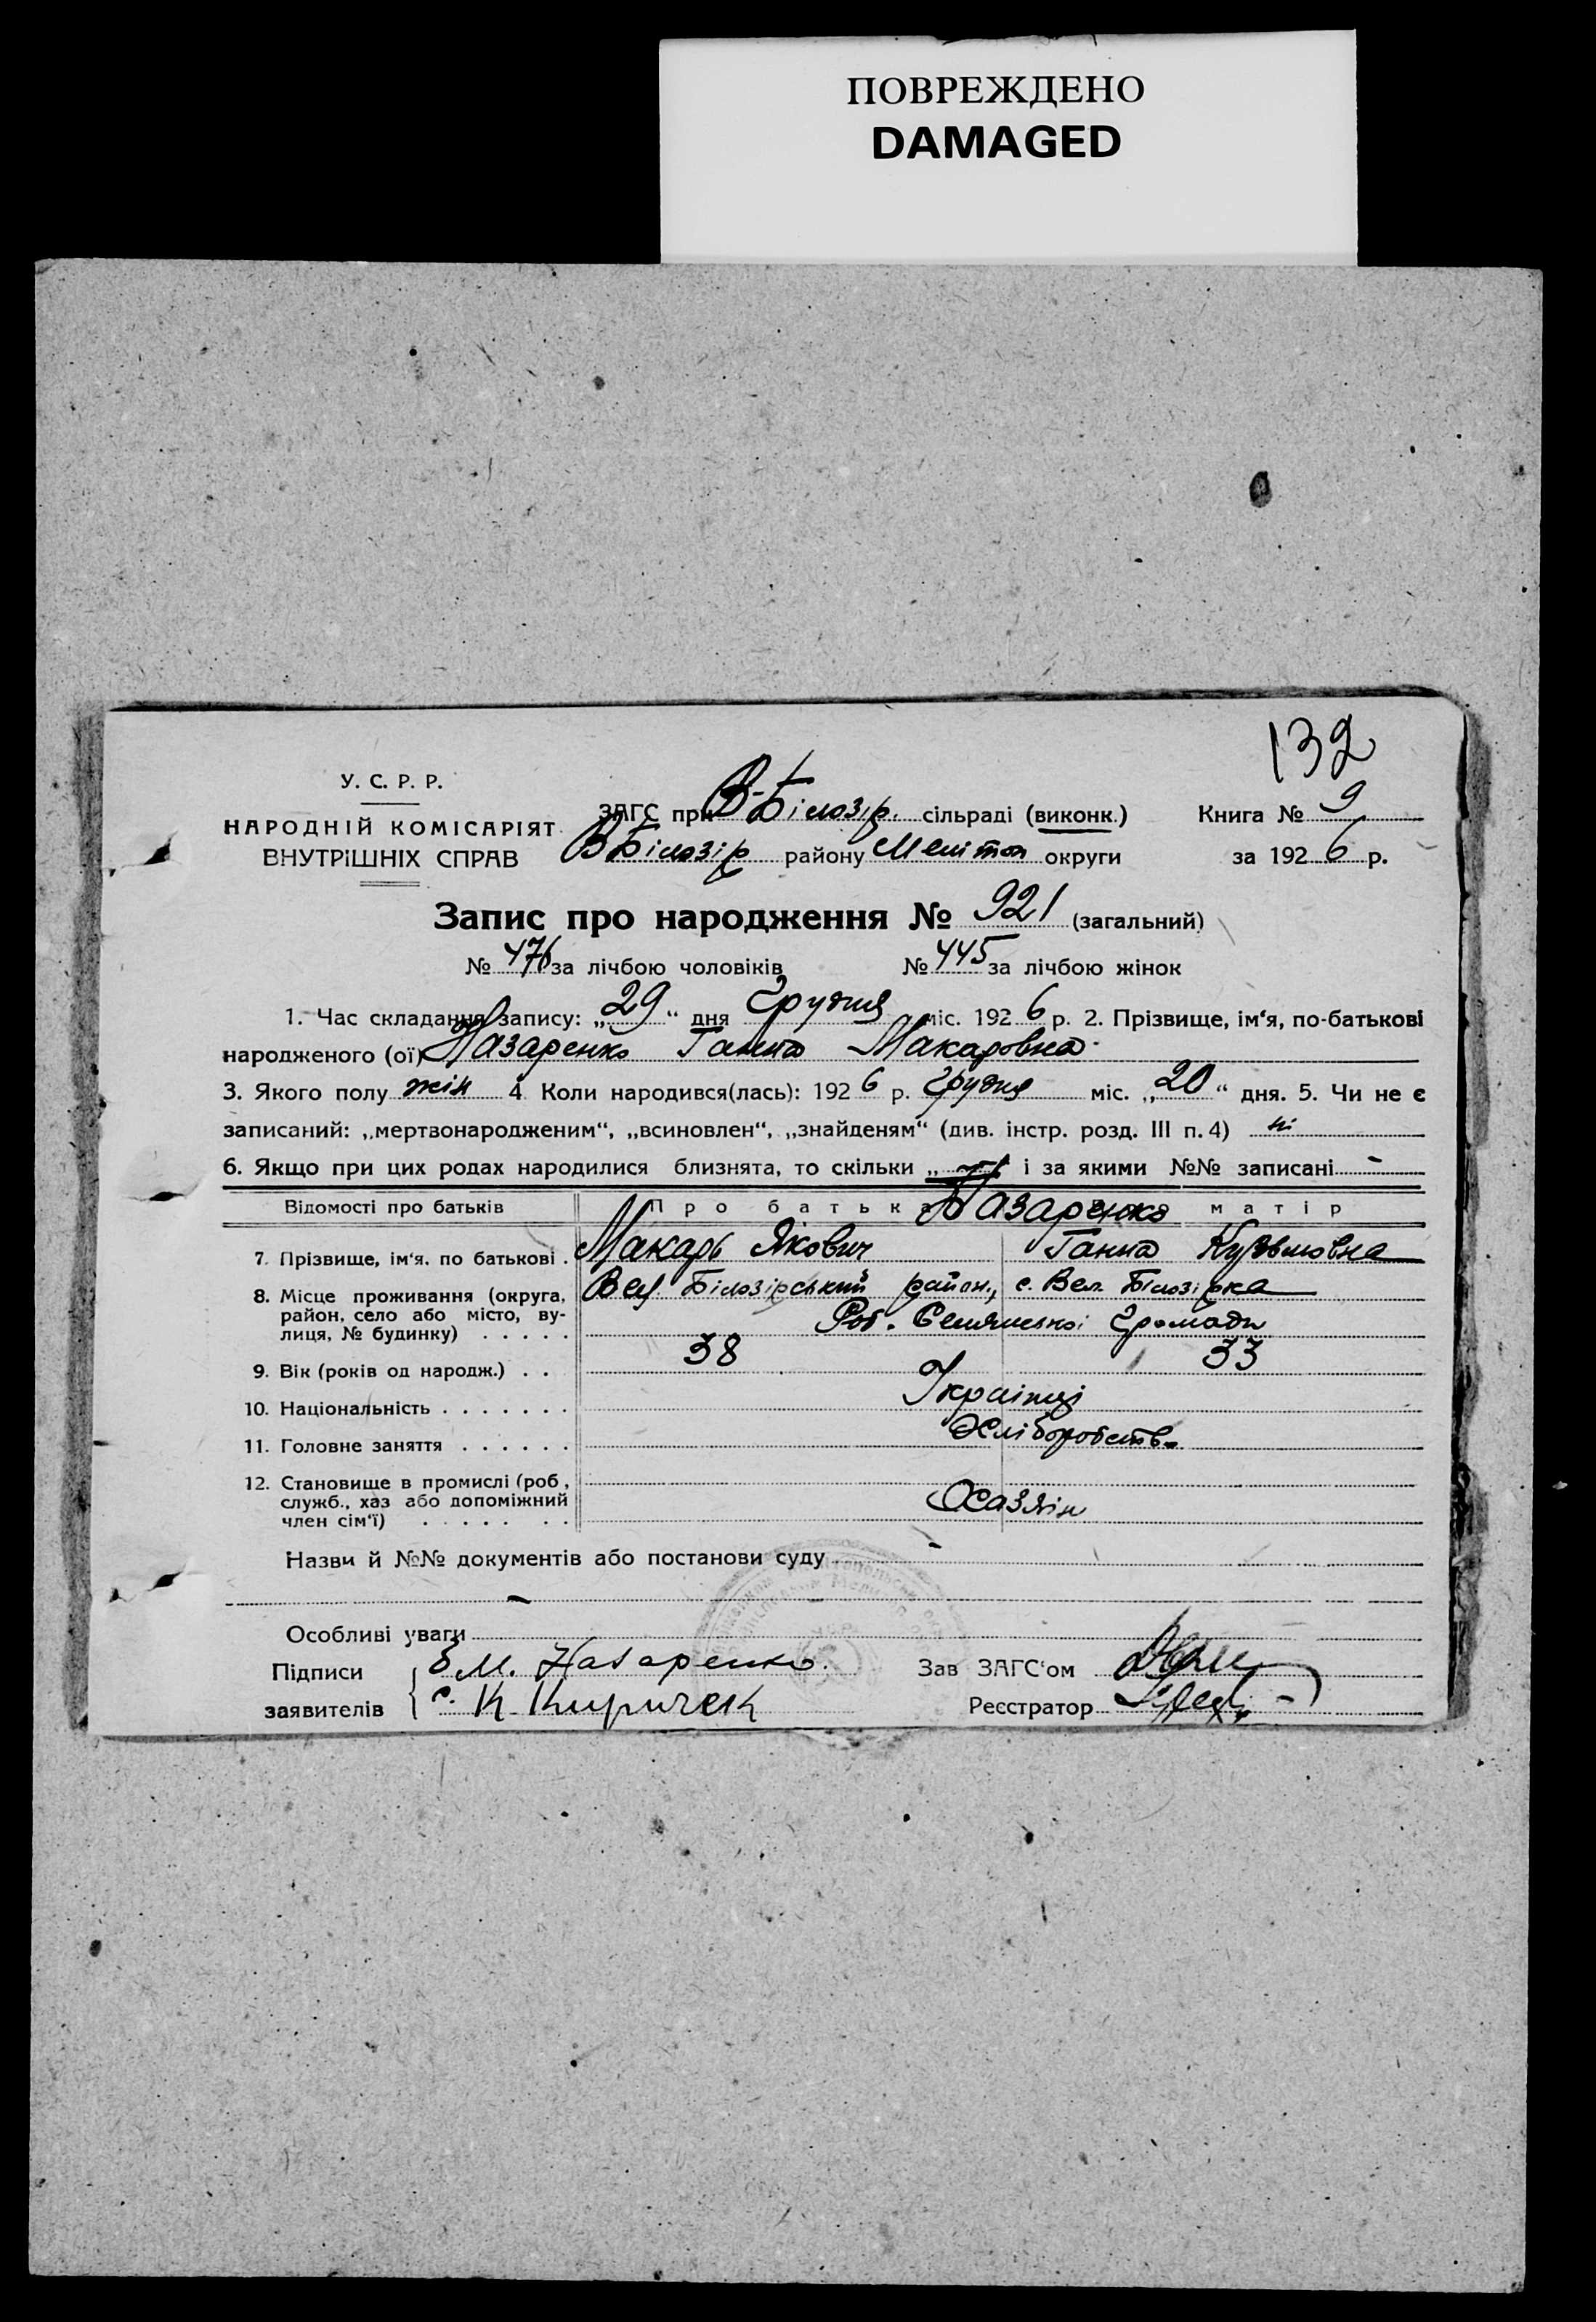 ПОВРЕЖДЕНО
DAMAGED
132
У. С. Р. Р.
НАРОДНІЙ КОМІСАРІЯТ
ВНУТРІШНІХ СПРАВ
ЗАГС при В-Білозір. сільраді (виконк.)
Книга № 9
ВБілозір району Мелітоп округи
за 1926 р.
Запис про народження № 921 (загальний)
№ 476 за лічбою чоловіків № 445 за лічбою жінок
1. Час складання запису: „29“ дня Грудня міс. 1926 р. 2. Прізвище, ім‘я, по-батькові
народженого (ої) Назаренко Ганна Макаровна
3. Якого полу жін 4. Коли народився(лась): 1926 р. Грудня міс. „20“ дня. 5. Чи не є
записаний: „мертвонародженим“, „всиновлен“, „знайденям“ (див. інстр. розд. III п. 4) ні
6. Якщо при цих родах народилися близнята, то скільки „ і за якими №№ записані -
Відомості про батьків Про батька матір
Назаренко
7. Прізвище, ім‘я. по батькові . Макарь Якович Ганна Кузьмовна
8. Місце проживання (округа, район, село або місто, вулиця, № будинку) . . . . . Вел. Білозірський район., с. Вел. Білозірка
Роб. Селянської Громади
9. Вік (років од народж.) . . 38 33
10. Національність . . . . . . . Українці
11. Головне заняття . . . . . . Хліборобств.
12. Становище в промислі (роб., служб., хаз або допоміжний член сім‘ї) . . . . . . . Хазяїн
Назви й №№ документів або постанови суду -
-
Особливі уваги
Підписи б М. Назаренко. Зав ЗАГС‘ом
заявителів с. К Киричек Реєстратор